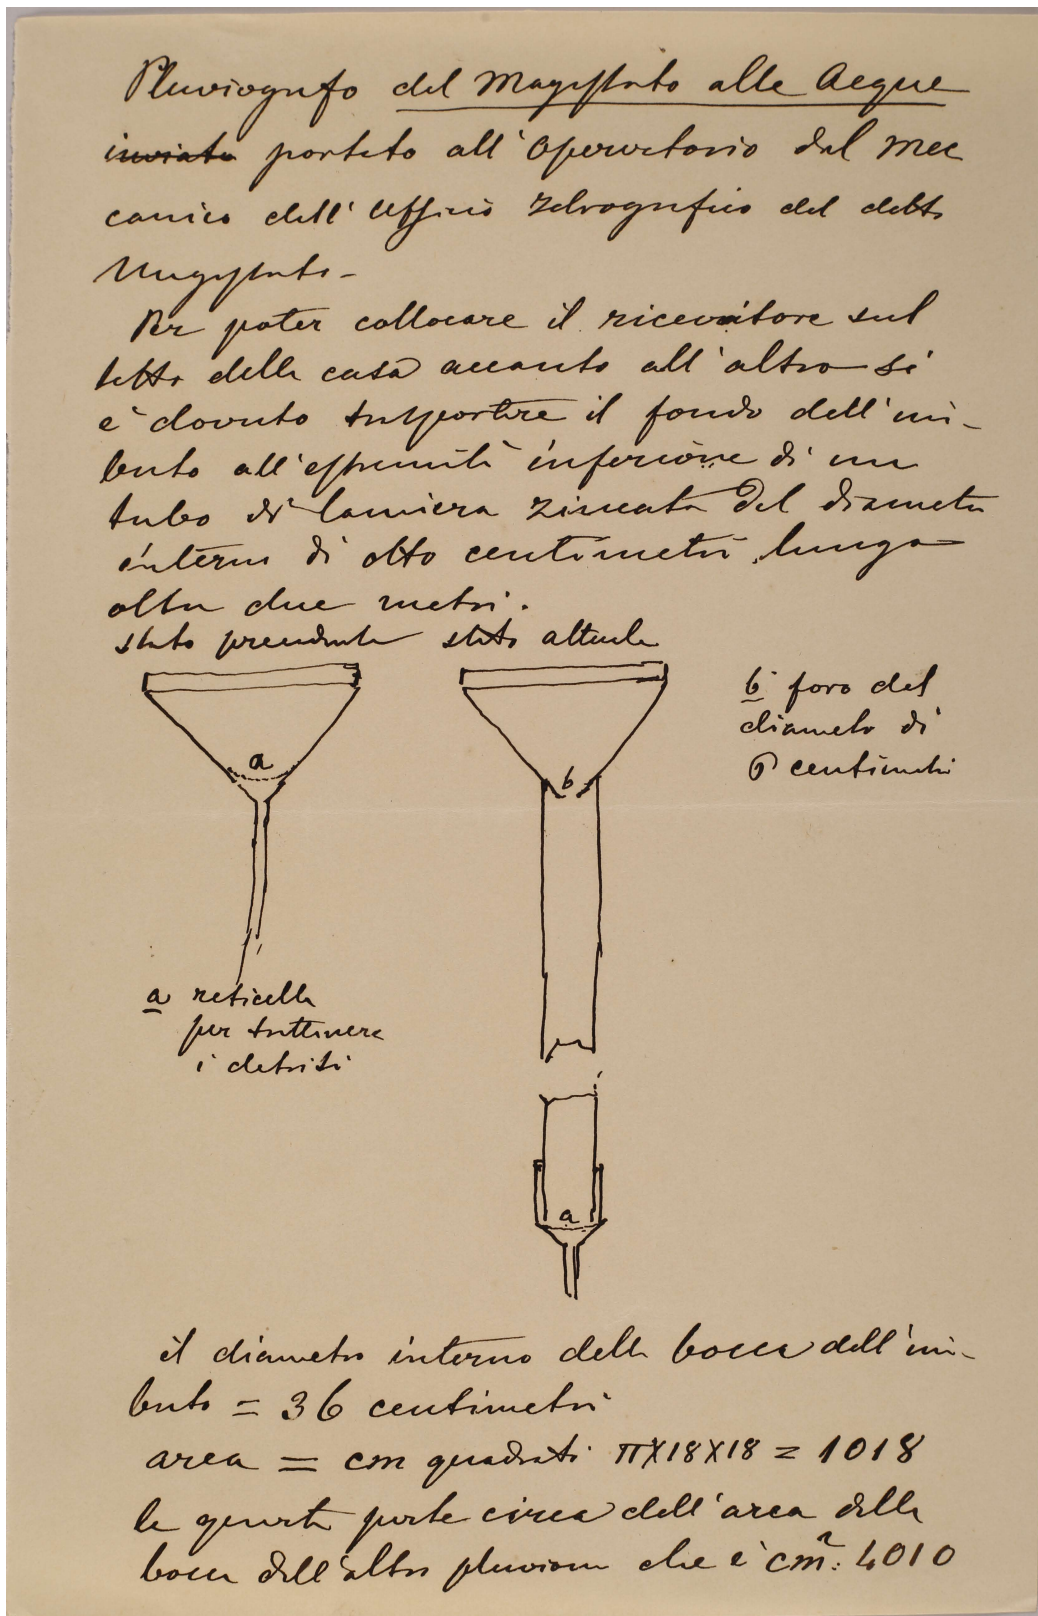 Pluviografo del Magistrato alle Acque
inviato portato all'Osservatorio dal mec
canico dell'Ufficio Idrografico del detto
Magistrato -
Per poter collocare il ricevitore sul
tetto della casa accanto all'altro si
è dovuto trasportare il fondo dell'im-
buto all'estremità inferiore di un
tubo di lamiera zincata del diametro
interno di otto centimetri, lungo
oltre due metri.
stato precedente stato attuale
a
b
b foro del
diametro di
6 centimetri
a reticella
per trattenere
i detriti
a
il diametro interno della bocca dell'im-
buto = 36 centimetri
area = cm quadrati π×18×18 = 1018
la quarta parte circa dell'area della
bocca dell'altro pluviom che è cm²: 4010